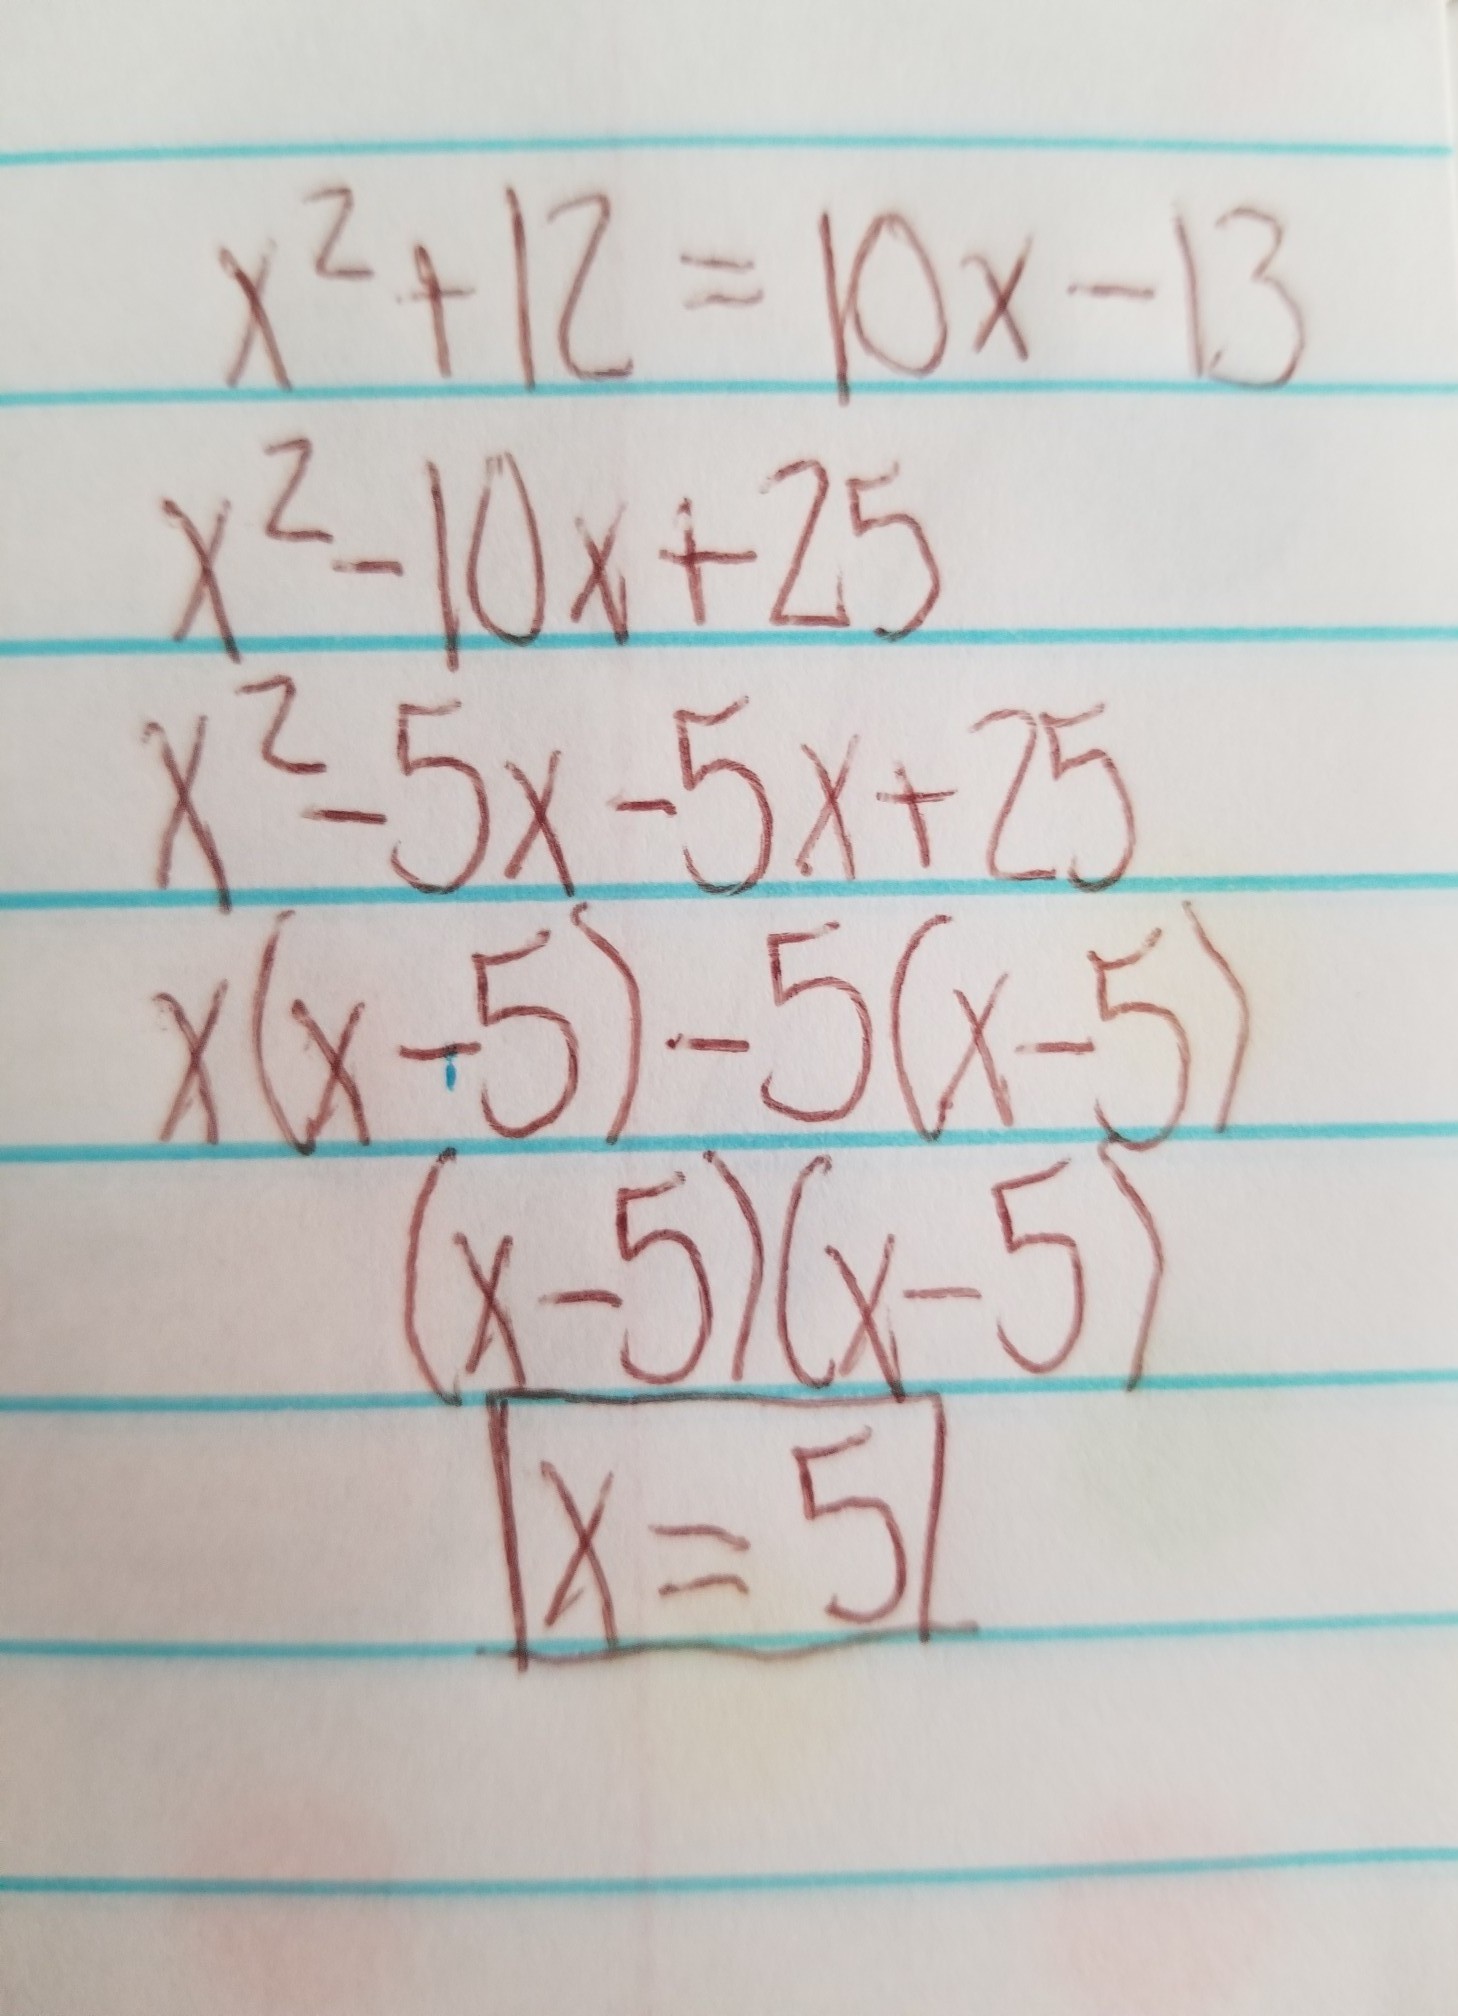 x²+12=10x-13
x²-10x+25
x²-5x-5x+25
x(x-5)-5(x-5)
(x-5)(x-5)
x=5